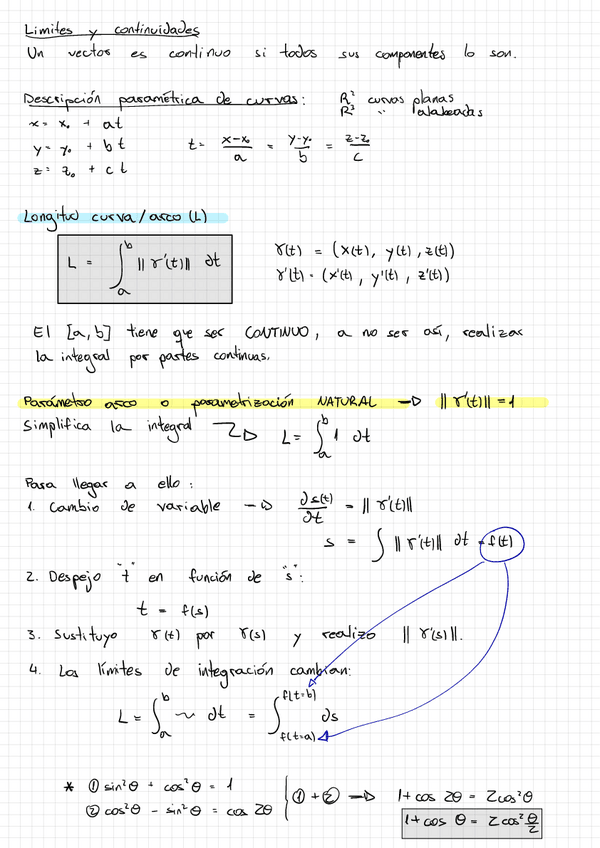 Limites y continuidades
Un vector es continuo si todos sus componentes lo son.
Descripción paramétrica de curvas: R² curvas planas
R³ " alabeadas
x = x₀ + at
y = y₀ + bt t = (x-x₀)/a = (y-y₀)/b = (z-z₀)/c
z = z₀ + ct
Longitud curva/arco (L)
L = ∫ₐᵇ ||γ'(t)|| dt
γ(t) = (x(t), y(t), z(t))
γ'(t) = (x'(t), y'(t), z'(t))
El [a, b] tiene que ser CONTINUO, a no ser así, realizar
la integral por partes continuas.
Parámetro arco o parametrización NATURAL → ||γ'(t)|| = 1
Simplifica la integral → L = ∫ₐᵇ 1 dt
Para llegar a ello:
1. Cambio de variable → ds(t)/dt = ||γ'(t)||
s = ∫ ||γ'(t)|| dt = f(t)
2. Despejo "t" en función de "s":
t = f(s)
3. Sustituyo γ(t) por γ(s) y realizo ||γ'(s)||.
4. Los límites de integración cambian:
L = ∫ₐᵇ ~ dt = ∫ f(t=a) f(t=b) ds
* ① sin²θ + cos²θ = 1
② cos²θ - sin²θ = cos 2θ
① + ② → 1 + cos 2θ = 2cos²θ
1 + cos θ = 2cos² θ/2